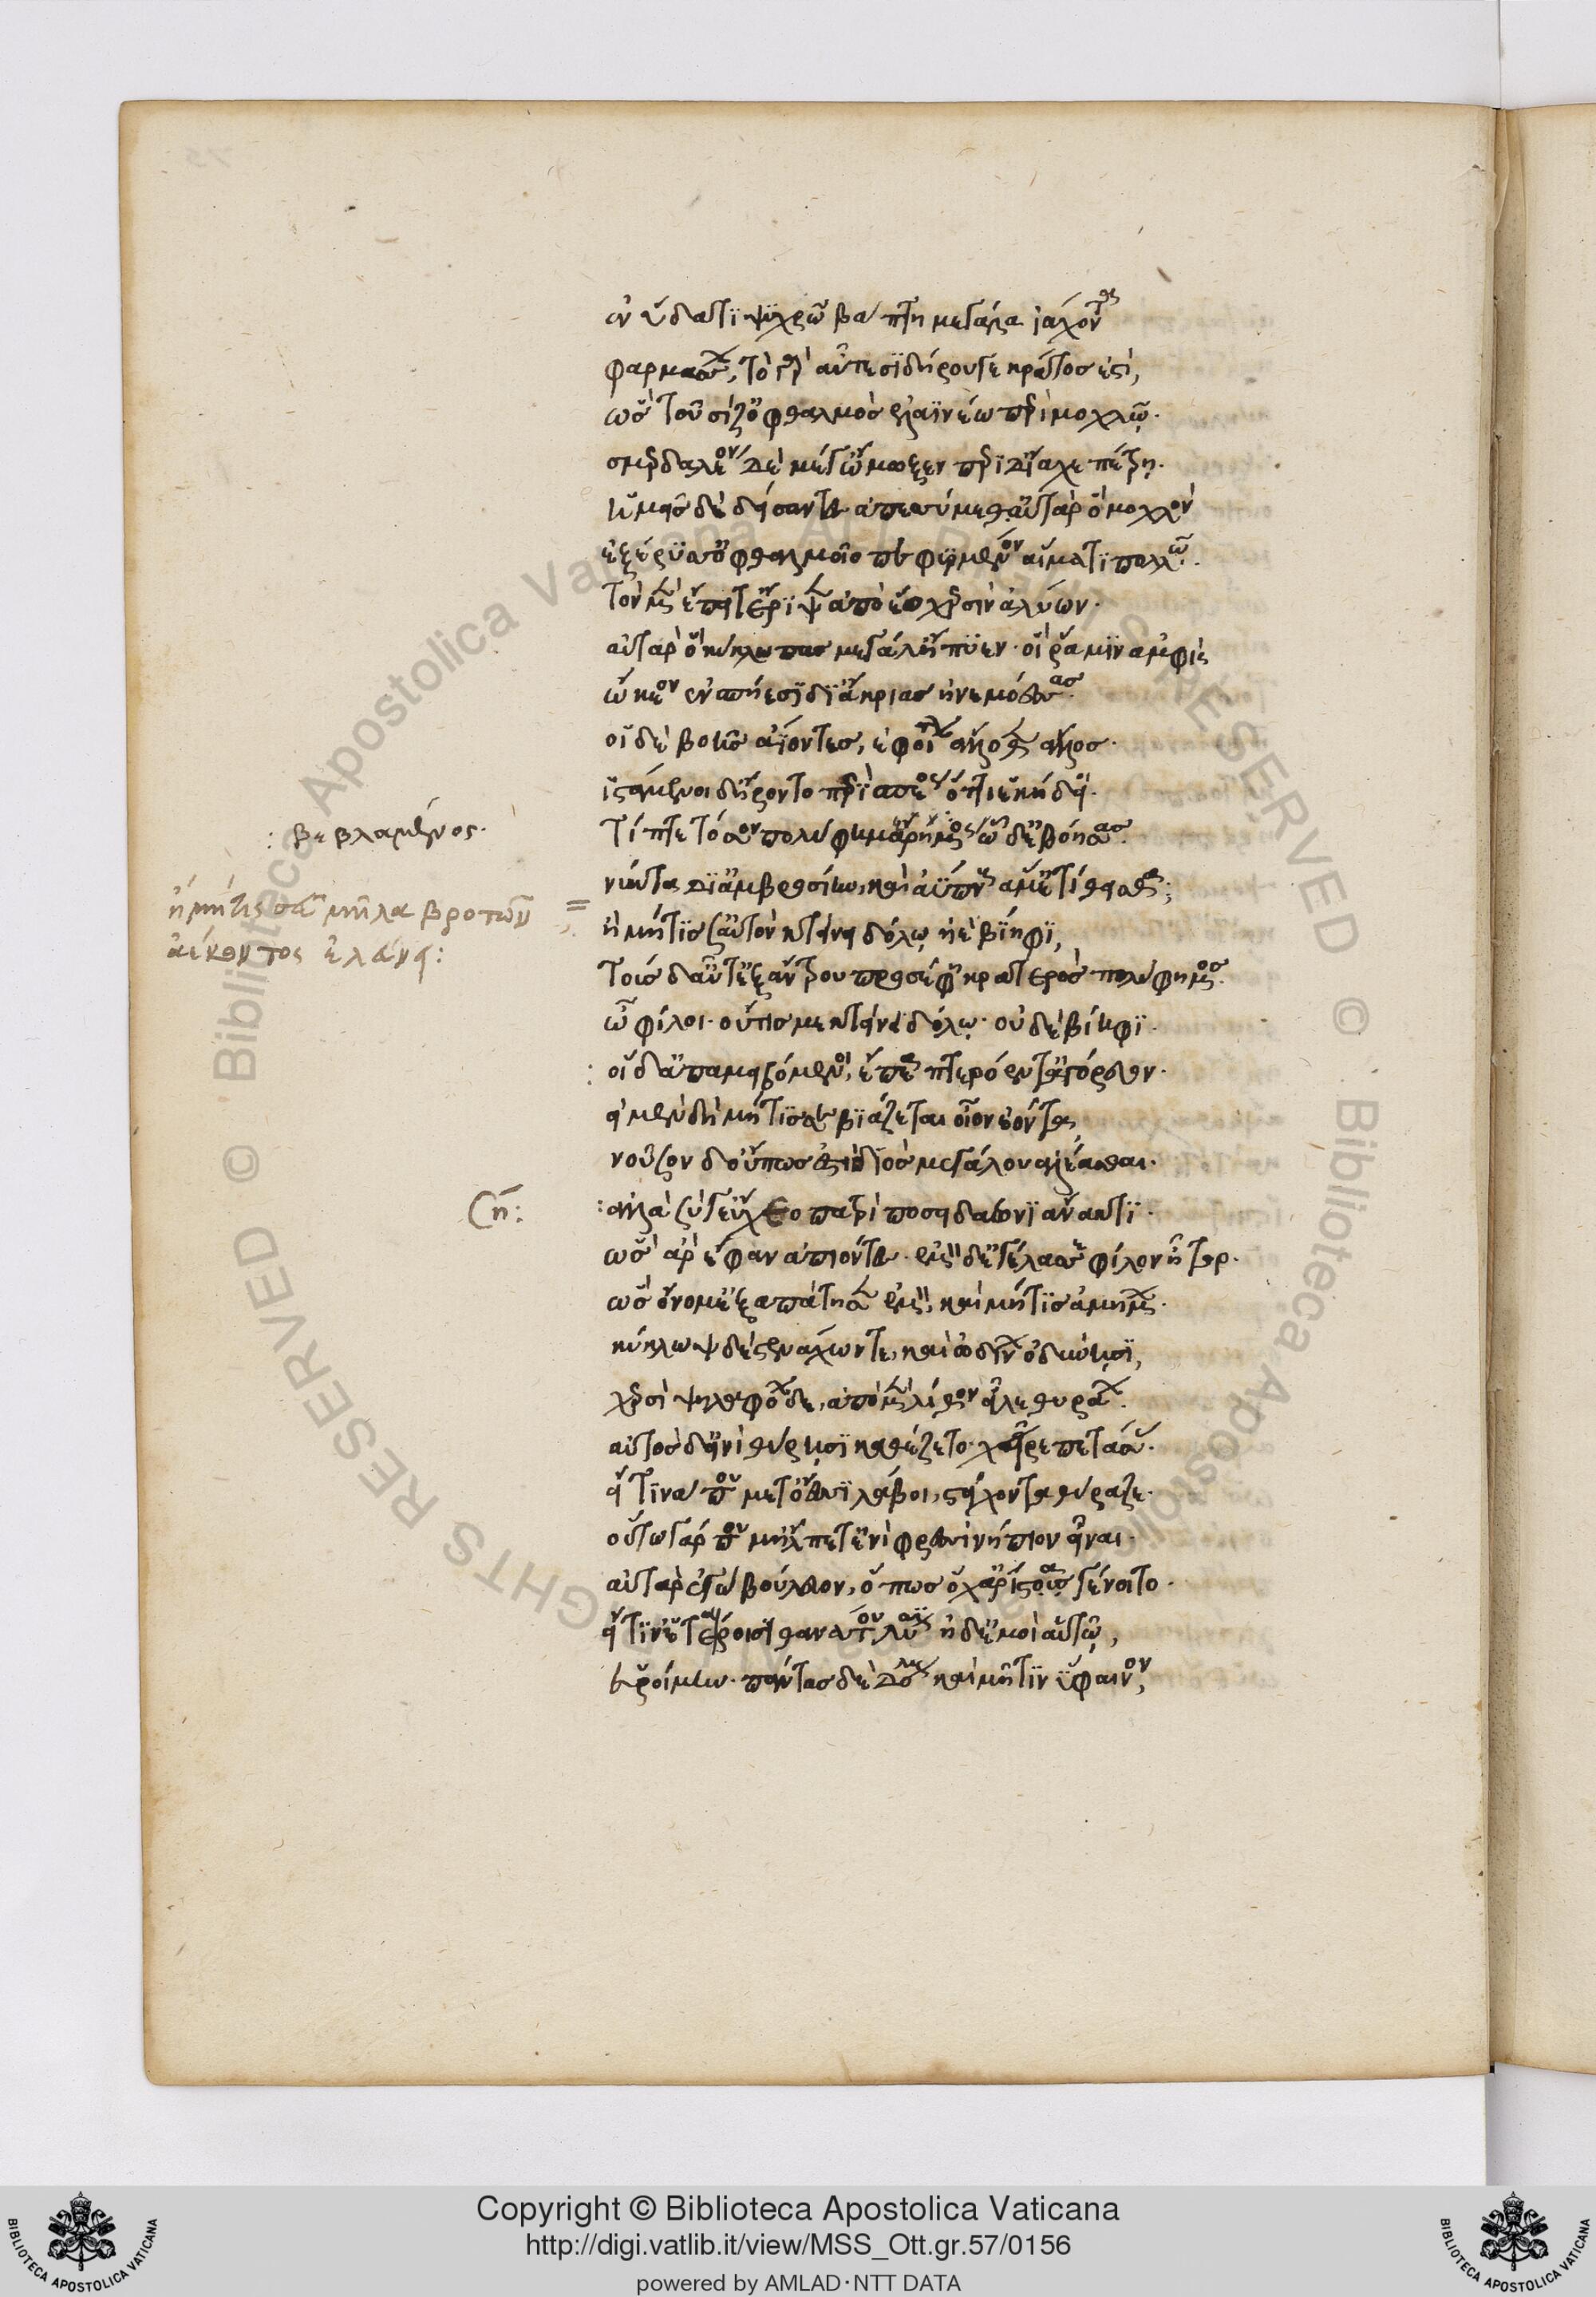 ἐν ὕδατι ψυχρῶ βάπτη μεγάλα ἰάχοντα
φαρμάσσων, τὸ γὰρ αὖτε σιδήρου γε κράτος ἐστὶ,
ὡς τοῦ σίζ' ὀφθαλμὸς ἐλαϊνέω περὶ μοχλῶ.
σμερδαλέον δὲ μέγ' ὤμωξεν περὶ δ' ἴαχε πέτρη.
ἡμεῖς δὲ δείσαντες ἀπεσσύμεθ' αὐτὰρ ὁ μοχλὸν
ἐξέρυσ' ὀφθαλμοῖο πεφυρμένον αἵματι πολλῶ.
τὸν μὲν ἔπειτ' ἔρριψεν ἀπὸ ἕο χερσὶν ἀλύων.
αὐτὰρ ὁ κύκλωπας μεγάλ' ἤπυεν. οἵ ῥά μιν ἀμφὶς
ὤκεον ἐν σπήεσι δι' ἄκριας ἠνεμοέσσας.
οἱ δὲ βοῆς ἀΐοντες, ἐφοίτων ἄλλοθεν ἄλλος.
ἱστάμενοι δ' εἴροντο περὶ σπέος ὅττι ἑ κήδει.
: βεβλαμμένος.
τίπτε τόσον πολύφημ' ἀρημένος ὧδ' ἐβόησας.
νύκτα δι' ἀμβροσίην, καὶ ἀΰπνους ἄμμε τίθησθα;
ἢ μήτις σεῦ μῆλα βροτῶν
ἀέκοντος ἐλαύνει:
ἢ μήτις σ' αὐτὸν κτείνει δόλω ἠὲ βίηφι,
τοὺς δ' αὖτ' ἐξ ἄντρου προσέφη κρατερὸς πολύφημος.
ὦ φίλοι. οὖτις με κτείνει δόλω. οὐδὲ βίηφι.
: οἱ δ' ἀπαμειβόμενοι, ἔπεα πτερόεντ' ἀγόρευον.
εἰ μὲν δὴ μήτις σε βιάζεται οἶον ἐόντα,
νοῦσον δ' οὔπως ἐστὶ διὸς μεγάλου ἀλέασθαι.
: ἀλλὰ σύ γ' εὔχεο πατρὶ ποσειδάωνι ἄνακτι.
ὣς ἄρ' ἔφαν ἀπιόντες. ἐμὸν δ' ἐγέλασσε φίλον ἦτορ.
ὡς ὄνομ' ἐξαπάτησεν ἐμὸν, καὶ μῆτις ἀμύμων.
κύκλωψ δὲ στενάχων τε, καὶ ὠδίνων ὀδύνῃσι,
χερσὶ ψηλαφόων, ἀπὸ μὲν λίθον εἷλε θυράων.
αὐτὸς δ' εἰνὶ θύρῃσι καθέζετο χεῖρε πετάσσας.
εἴ τινά που μετ' ὄεσσι λάβοι, στείχοντα θύραζε.
οὕτω γάρ που μ' ἤλπετ' ἐνὶ φρεσὶ νήπιον εἶναι.
αὐτὰρ ἐγὼ βούλευον, ὅπως ὄχ' ἄριστα γένοιτο.
εἴ τιν' ἑταίροισι θανάτου λύσιν ἠδ' ἐμοὶ αὐτῶ,
εὑροίμην. πάντας δὲ δόλους καὶ μῆτιν ὕφαινον,
Copyright © Biblioteca Apostolica Vaticana
http://digi.vatlib.it/view/MSS_Ott.gr.57/0156
powered by AMLAD·NTT DATA